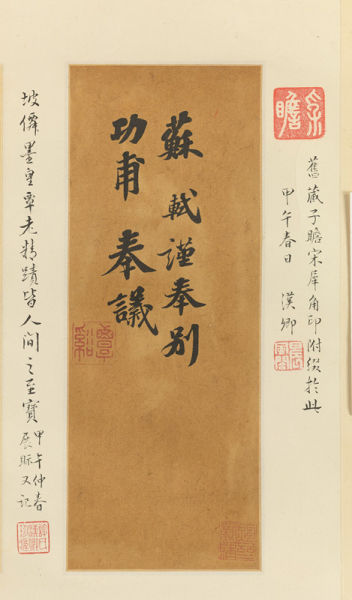 舊藏子瞻宋犀角印附綴於此
甲午春日 漢卿
蘇軾謹奉別
功甫奉議
覃谿
坡僊墨皇覃老精蹟皆人間之至寶
甲午仲春
展眎又記